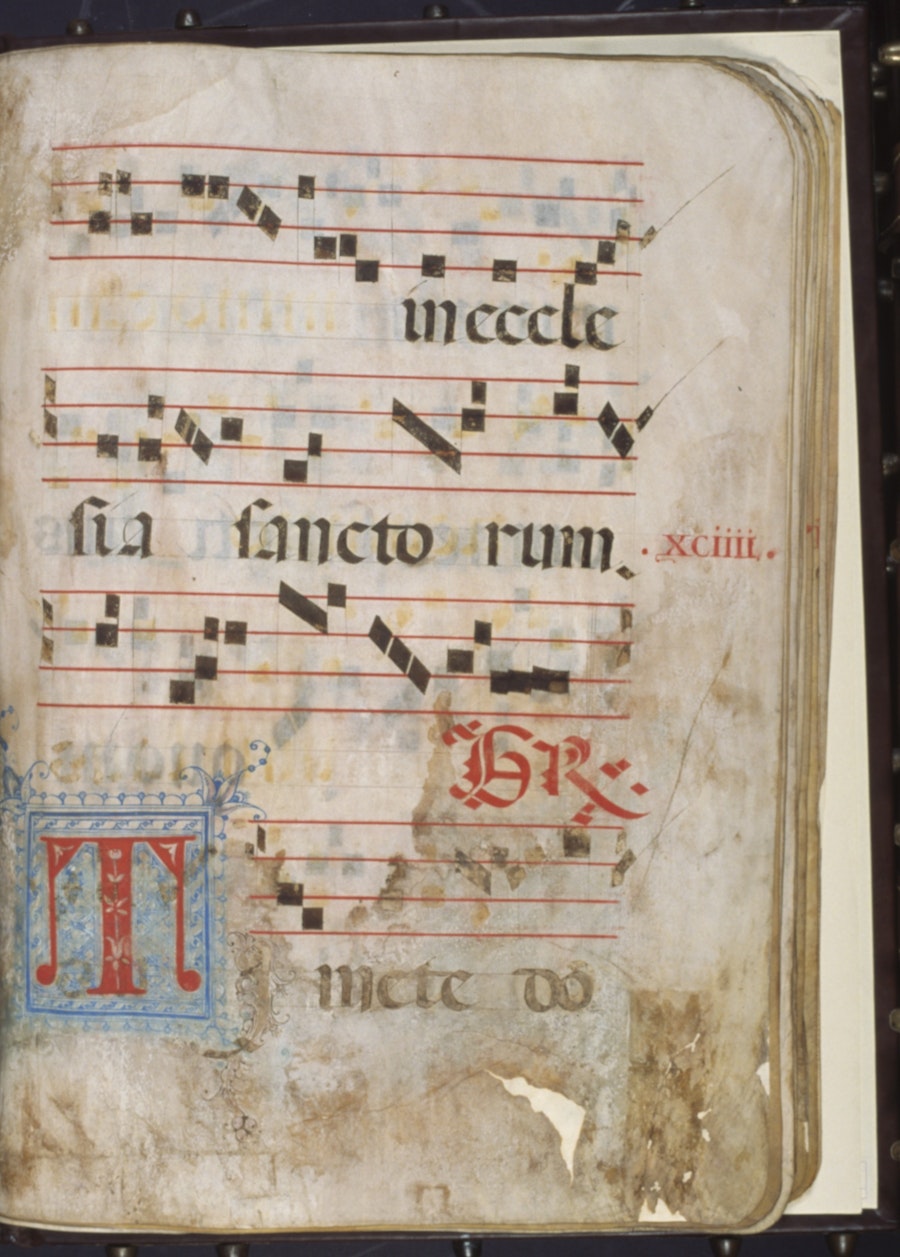 in eccle
sia sancto rum.
. xciiii .
GR
T
imete do